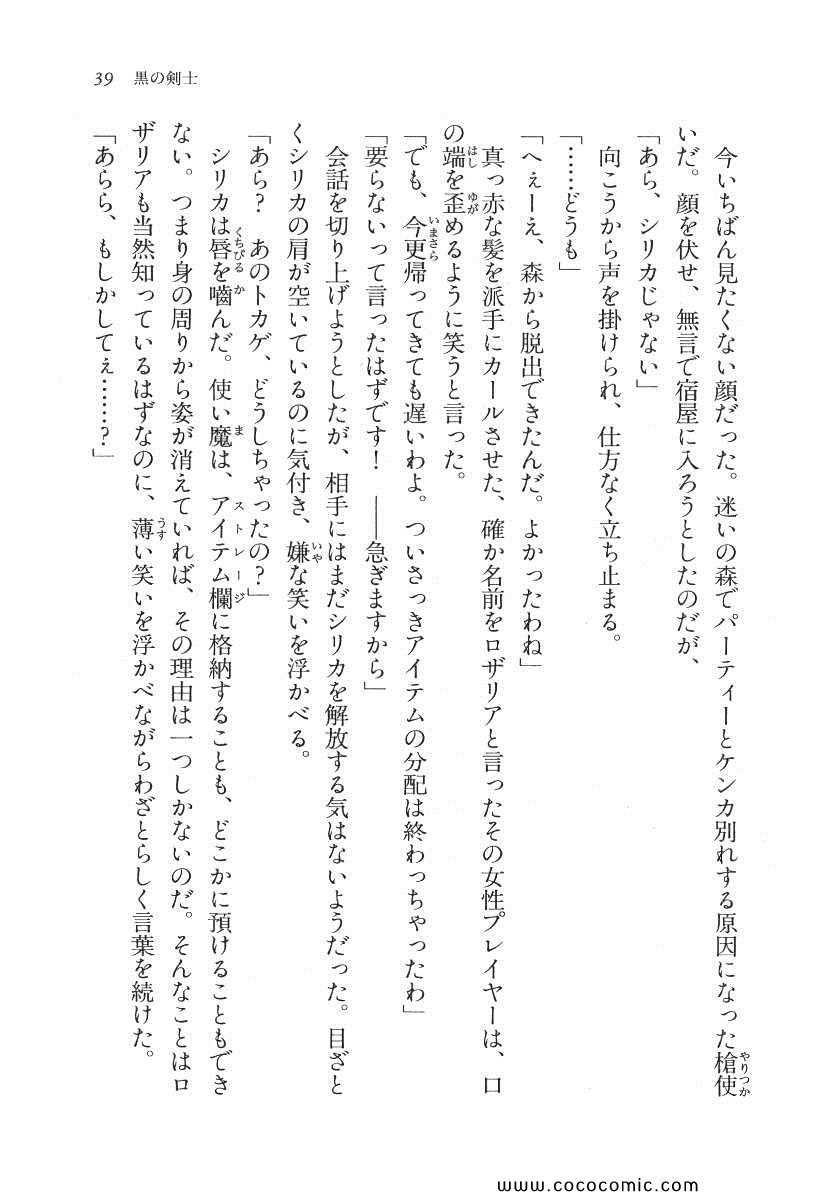 39 黒の剣士
今いちばん見たくない顔だった。迷いの森でパーティーとケンカ別れする原因になった槍使
いだ。顔を伏せ、無言で宿屋に入ろうとしたのだが、
「あら、シリカじゃない」
向こうから声を掛けられ、仕方なく立ち止まる。
「……どうも」
「へぇーえ、森から脱出できたんだ。よかったわね」
真っ赤な髪を派手にカールさせた、確か名前をロザリアと言ったその女性プレイヤーは、口
の端を歪めるように笑うと言った。
「でも、今更帰ってきても遅いわよ。ついさっきアイテムの分配は終わっちゃったわ」
「要らないって言ったはずです！　――急ぎますから」
会話を切り上げようとしたが、相手にはまだシリカを解放する気はないようだった。目ざと
くシリカの肩が空いているのに気付き、嫌な笑いを浮かべる。
「あら？　あのトカゲ、どうしちゃったの？」
シリカは唇を嚙んだ。使い魔は、アイテム欄に格納することも、どこかに預けることもでき
ない。つまり身の周りから姿が消えていれば、その理由は一つしかないのだ。そんなことはロ
ザリアも当然知っているはずなのに、薄い笑いを浮かべながらわざとらしく言葉を続けた。
「あらら、もしかしてぇ……？」
www.cococomic.com